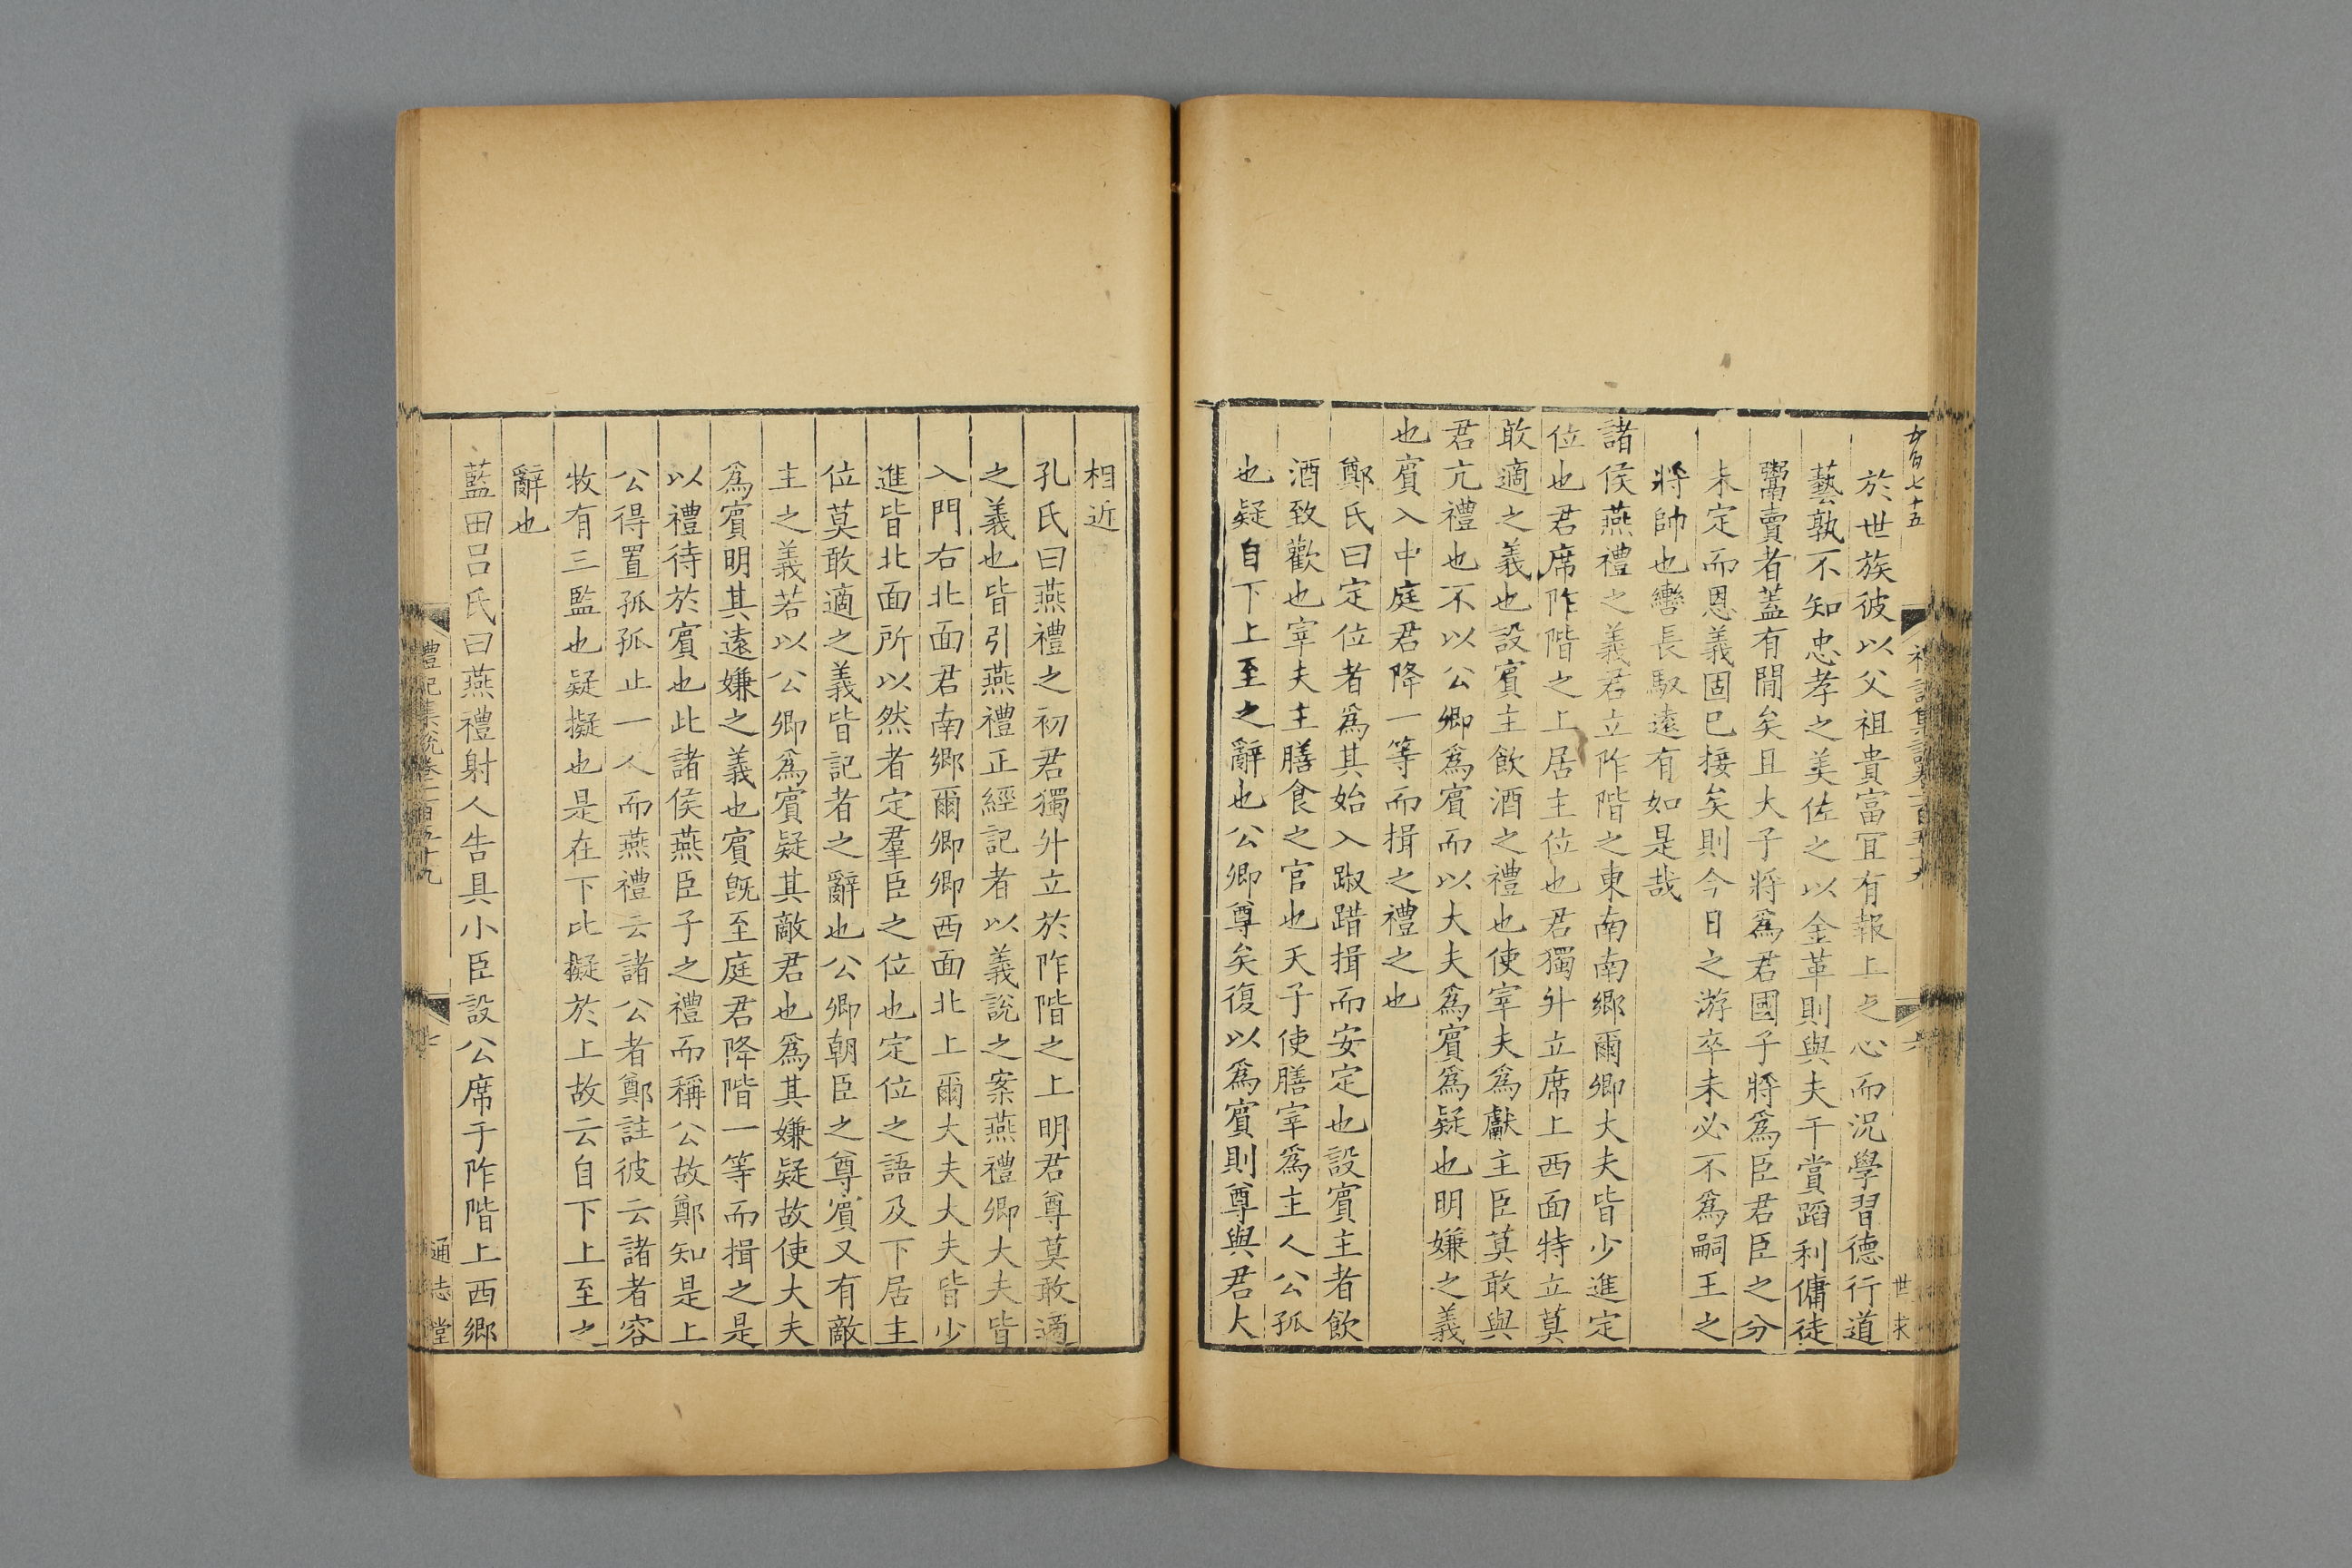 於世族彼以父祖貴富冝有報上之心而況學習德行道
藝孰不知忠孝之美佐之以金革則與夫干賞蹈利傭徒
鬻賣者蓋有閒矣且大子將爲君國子將爲臣君臣之分
未定而恩義固已接矣則今日之游卒未必不爲嗣王之
將帥也轡長馭遠有如是哉
諸侯燕禮之義君立阼階之東南南鄉爾卿大夫皆少進定
位也君席阼階之上居主位也君獨升立席上西面特立莫
敢適之義也設賓主飲酒之禮也使宰夫爲獻主臣莫敢與
君亢禮也不以公卿爲賓而以大夫爲賓爲疑也明嫌之義
也賓入中庭君降一等而揖之禮之也
鄭氏曰定位者爲其始入踧踖揖而安定也設賓主者飲
酒致歡也宰夫主膳食之官也天子使膳宰爲主人公孤
也疑自下上至之辭也公卿尊矣復以爲賓則尊與君大
世求
相近
孔氏曰燕禮之初君獨升立於阼階之上明君尊莫敢適
之義也皆引燕禮正經記者以義說之案燕禮卿大夫皆
入門右北面君南鄉爾卿卿西面北上爾大夫大夫皆少
進皆北面所以然者定羣臣之位也定位之語及下居主
位莫敢適之義皆記者之辭也公卿朝臣之尊賓又有敵
主之義若以公卿爲賓疑其敵君也爲其嫌疑故使大夫
爲賓明其遠嫌之義也賓旣至庭君降階一等而揖之是
以禮待於賓也此諸侯燕臣子之禮而稱公故鄭知是上
公得置孤孤止一人而燕禮云諸公者鄭註彼云諸者容
牧有三監也疑擬也是在下比擬於上故云自下上至之
辭也
藍田呂氏曰燕禮射人告具小臣設公席于阼階上西鄉
禮記集說卷一百五十九
通志堂